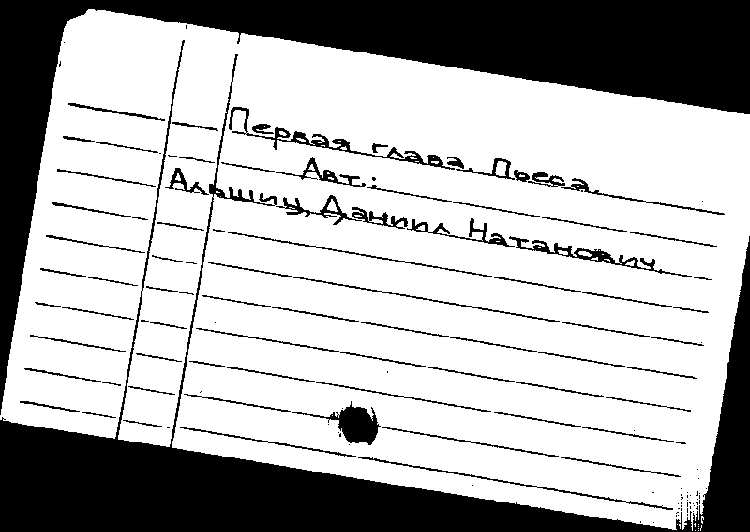 Первая глава. Пьеса.
Авт.:
Альшиц, Даниил Натанович.